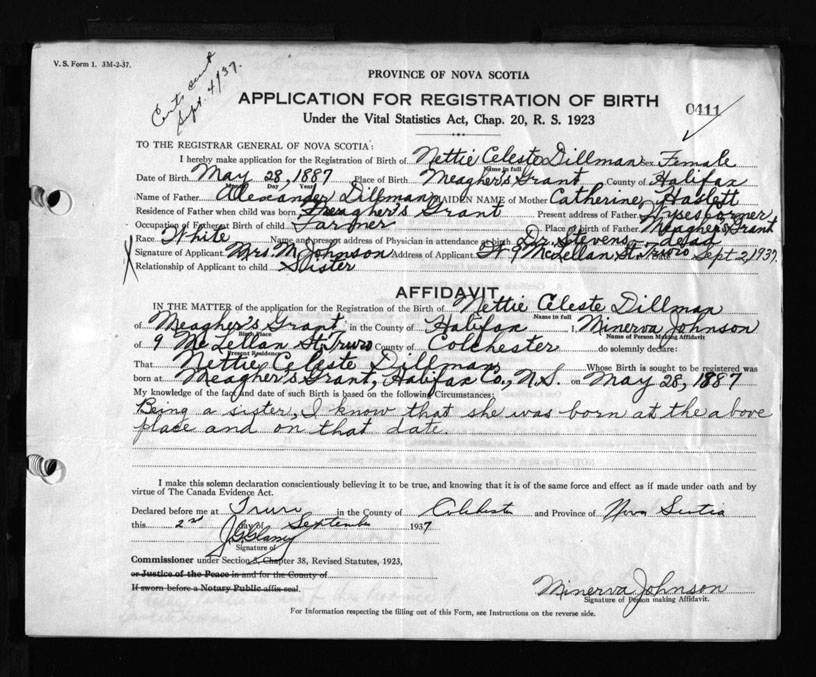 V. S. Form 1. 3M-2-37.
Certs sent
Sept. 4/37.
PROVINCE OF NOVA SCOTIA
APPLICATION FOR REGISTRATION OF BIRTH
0411
Under the Vital Statistics Act, Chap. 20, R. S. 1923
TO THE REGISTRAR GENERAL OF NOVA SCOTIA:
I hereby make application for the Registration of Birth of Nettie Celeste Dillman Sex Female
Name in full
Date of Birth May 28, 1887 Place of Birth Meagher's Grant County of Halifax
Month Day Year
Name of Father Alexander Dillman MAIDEN NAME of Mother Catherine Haslett
Residence of Father when child was born Meagher's Grant Present address of Father
Occupation of Father at Birth of child Farmer Place of Birth of Father Meagher's Grant
Race White Name and present address of Physician in attendance at birth Dr. Stevens dead
X Signature of Applicant Mrs. M. Johnson Address of Applicant 9 McLellan St. Truro Sept 2, 1937.
Relationship of Applicant to child Sister
AFFIDAVIT
IN THE MATTER of the application for the Registration of the Birth of Nettie Celeste Dillman
Name in full
of Meagher's Grant in the County of Halifax I, Minerva Johnson
Birth Place Name of Person Making Affidavit
of 9 McLellan St. Truro County of Colchester do solemnly declare:
Present Residence
That Nettie Celeste Dillman Whose Birth is sought to be registered was
born at Meagher's Grant, Halifax Co., N.S. on May 28, 1887
My knowledge of the fact and date of such Birth is based on the following Circumstances:
Being a sister, I know that she was born at the above
place and on that date.
I make this solemn declaration conscientiously believing it to be true, and knowing that it is of the same force and effect as if made under oath and by
virtue of The Canada Evidence Act.
Declared before me at Truro in the County of Colchester and Province of Nova Scotia
this 2nd day of September 1937
Signature of
Commissioner under Section 3, Chapter 38, Revised Statutes, 1923,
or Justice of the Peace in and for the County of
If sworn before a Notary Public affix seal.
Minerva Johnson
Signature of Person making Affidavit.
For Information respecting the filling out of this Form, see Instructions on the reverse side.